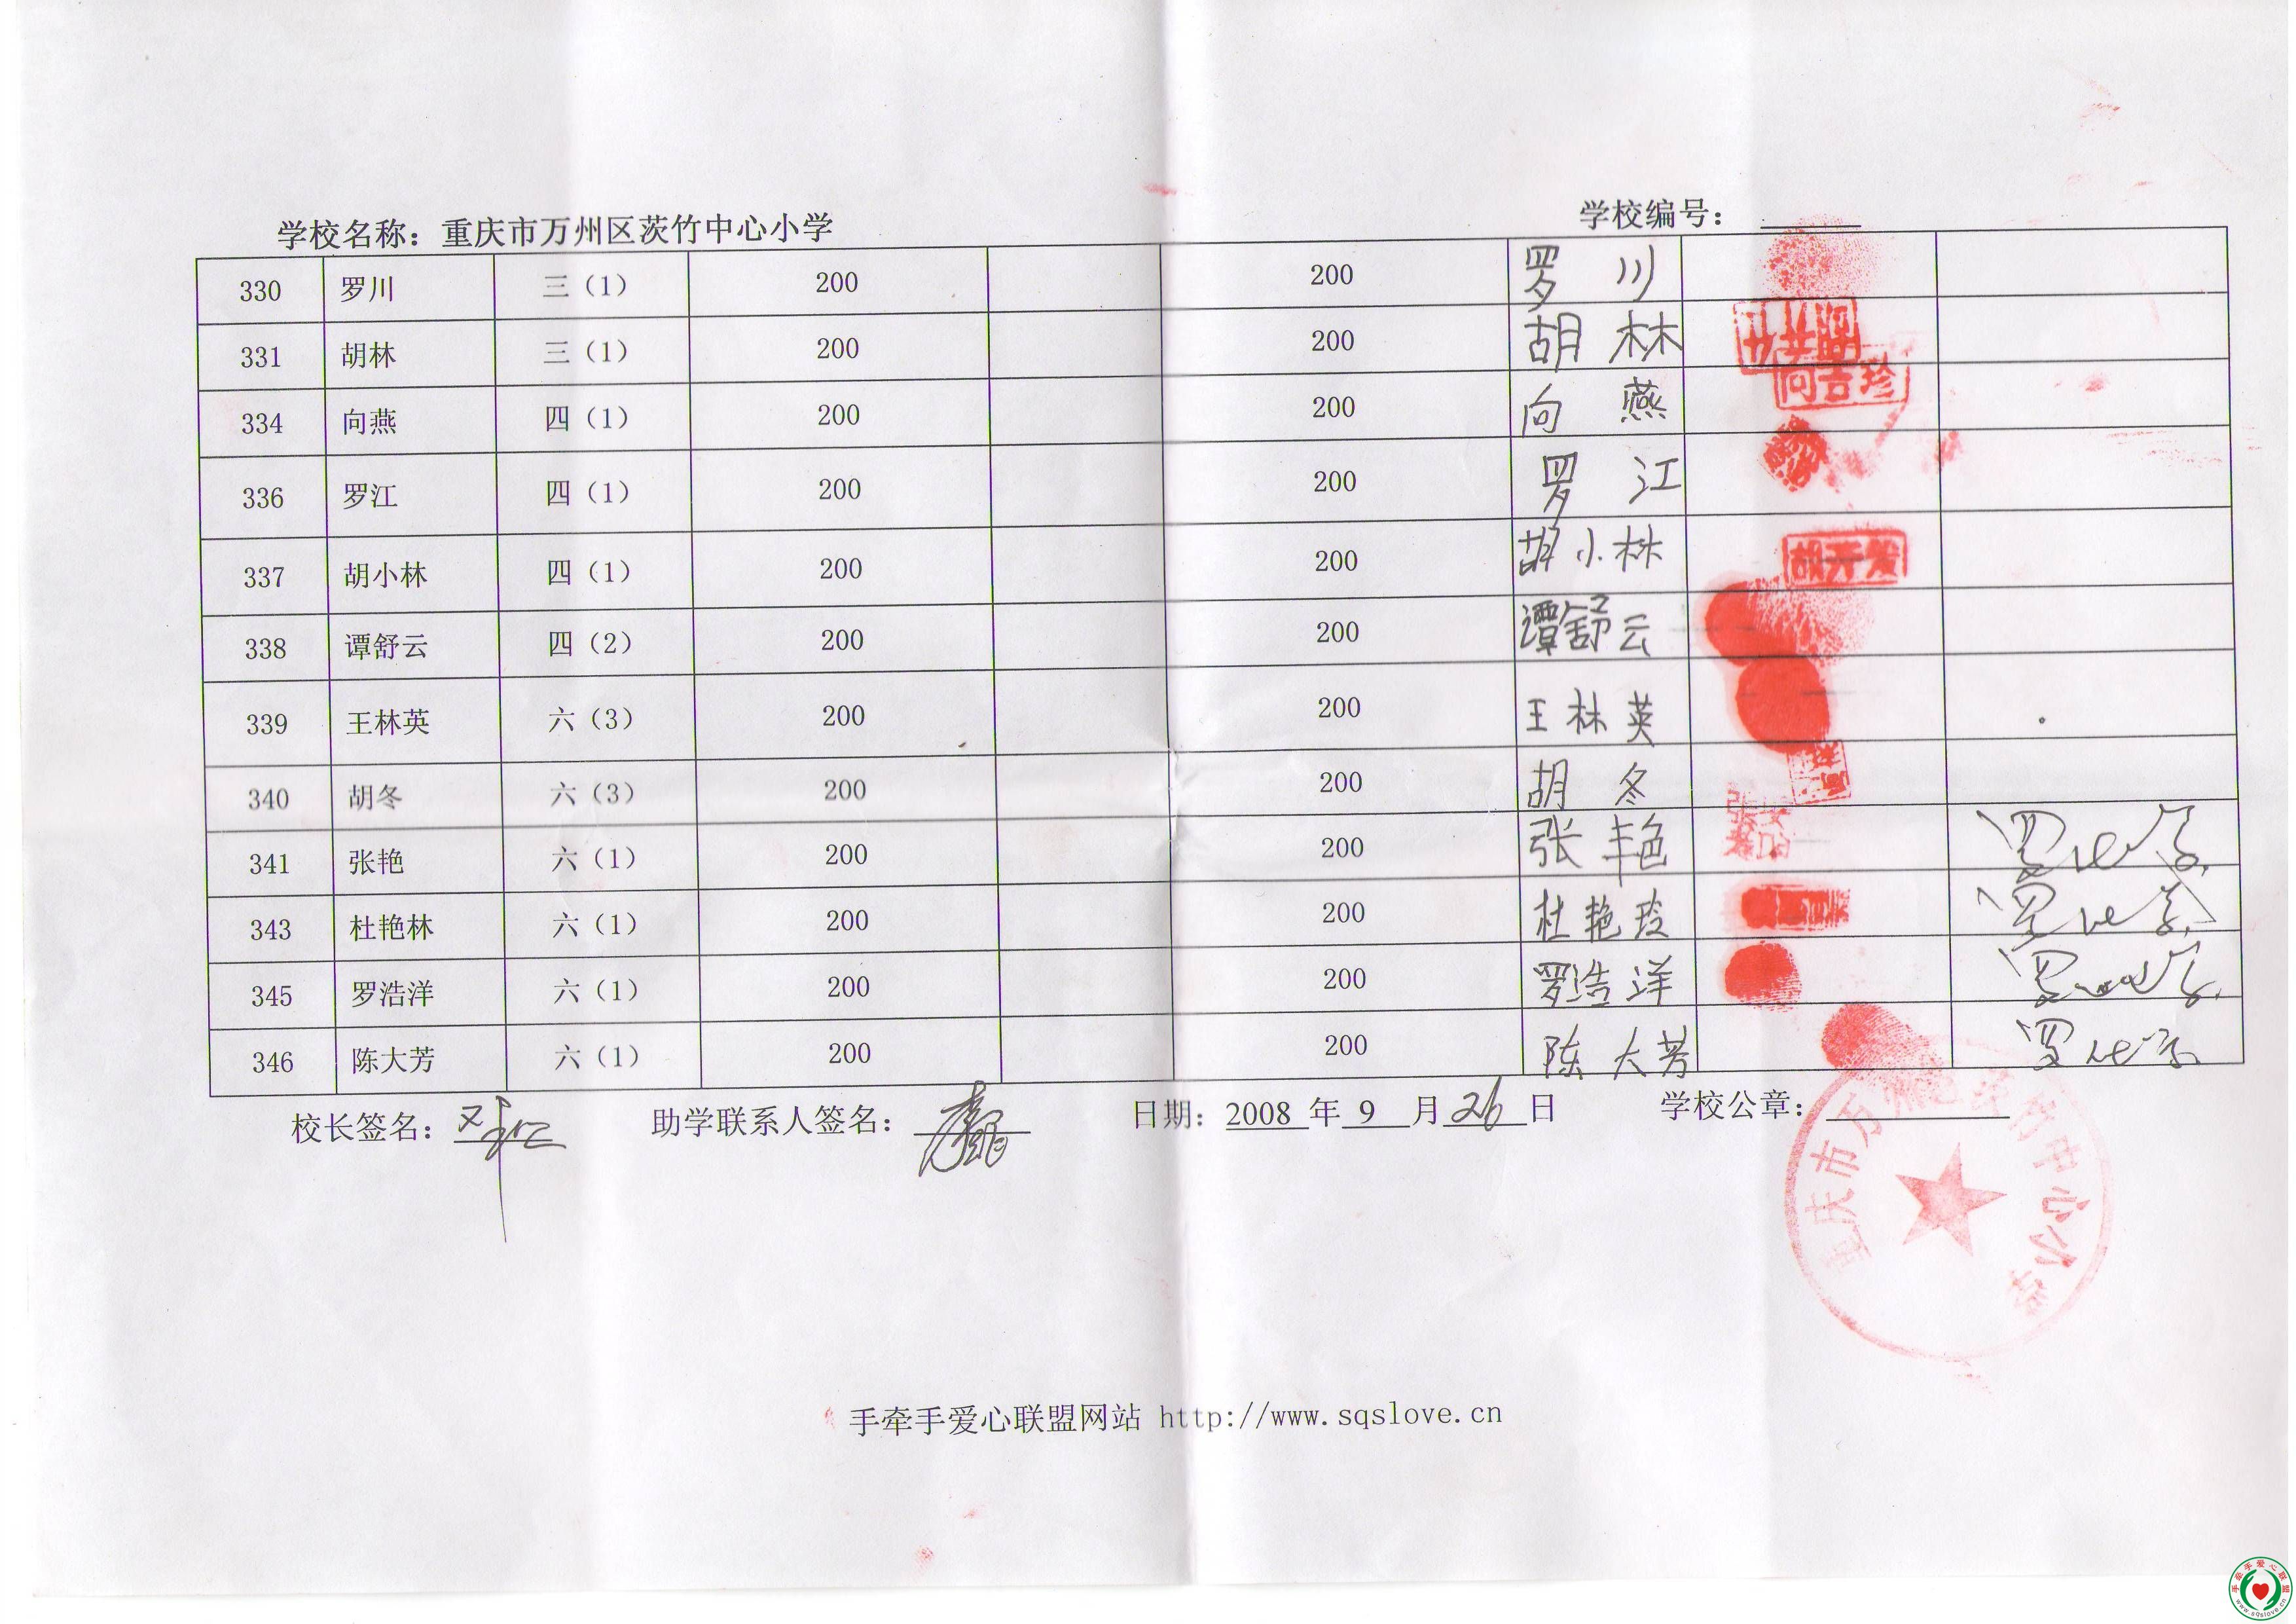 学校名称：重庆市万州区茨竹中心小学 学校编号：
330 罗川 三（1） 200 200 罗川
331 胡林 三（1） 200 200 胡林
334 向燕 四（1） 200 200 向燕 向吉珍
336 罗江 四（1） 200 200 罗江
337 胡小林 四（1） 200 200 胡小林 胡开发
338 谭舒云 四（2） 200 200 谭舒云
339 王林英 六（3） 200 200 王林英
340 胡冬 六（3） 200 200 胡冬
341 张艳 六（1） 200 200 张艳
343 杜艳林 六（1） 200 200 杜艳玲
345 罗浩洋 六（1） 200 200 罗浩洋
346 陈大芳 六（1） 200 200 陈大芳
校长签名： 助学联系人签名： 日期：2008 年 9 月 26 日 学校公章：
重庆市万州区茨竹中心小学
手牵手爱心联盟网站 http://www.sqslove.cn
手牵手爱心联盟
www.sqslove.cn